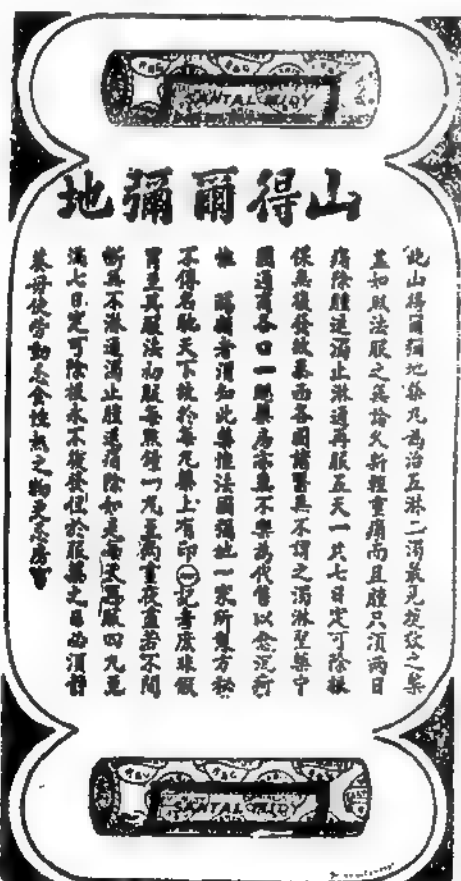 SANTAL MIDY
山得爾彌地
此山得爾彌地藥凡為治五淋二濁最見捷效之藥
蓋如照法服之無論久新輕重痛而且腫只須兩日
痛除腫退濁止淋通再服五天一共七日定可除根
保無復發故泰西各國諸醫無不謂之濁淋聖藥中
國通商各口一概藥房亦無不樂為代售以愈沉疴
惟 購藥者須知此藥惟法國彌地一家所製方秘
不傳名馳天下故於每凡藥上有印 記者庶非假
冒至其服法初服每點鐘一凡至兩晝夜盡若不間
斷無不淋通濁止腫退痛除如是每天再服四凡至
滿七日定可除根永不復發但於服藥之日必須靜
養毋使勞動忌食性熱之物更忌房事
SANTAL MIDY